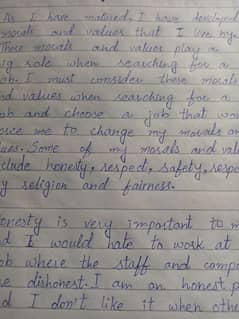 As I have matured, I have developed
morals and values that I live by.
These morals and values play a
ig role when searching for a
ob. I must consider these morals
nd values when searching for a
ob and choose a job that won
orce me to change my morals or
lues. Some of my morals and valu
clude honesty, respect, safety, respe
y religion and fairness.
onesty is very important to m
d I would hate to work at
ob where the staff and comp
e dishonest. I am an honest p
d I don't like it when othe